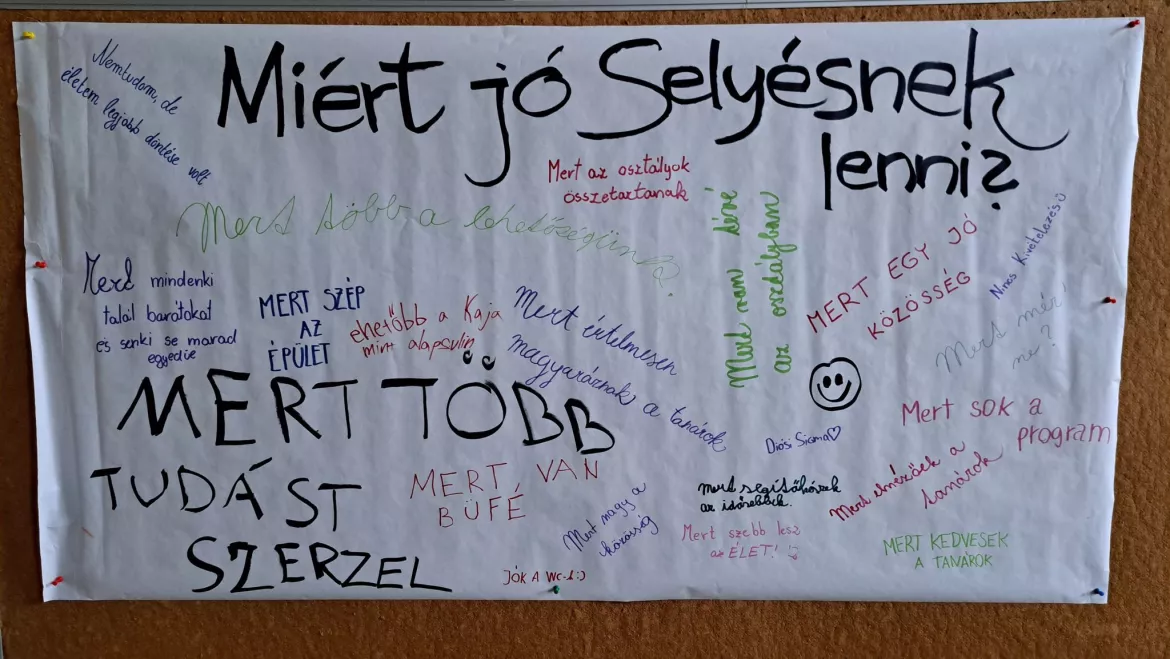 Miért jó Selyésnek
lenni?
Nemtudom, de
életem legjobb döntése volt
Mert az osztályok
összetartanak
Mert több a lehetőségünk.
az osztályban
MERT EGY JÓ
KÖZÖSSÉG
Nincs Kivételezés:)
Mert mér'
ne?
Mert mindenki
talál barátokat
és senki se marad
egyedül
MERT SZÉP
AZ
ÉPÜLET
ehetőbb a Kaja
mint alapsulin
Mert értelmesen
magyaráznak a tanárok
MERT TÖBB
TUDÁST
SZERZEL
MERT, VAN
BÜFÉ
Diósi Sigma♡
Mert sok a
program
Mert segítőkészek
az idősebbek.
Mert elnézőek a
tanárok
Mert nagy a
közösség
Mert szebb lesz
az ÉLET! :)
MERT KEDVESEK
A TANÁROK
JÓK A WC-k:)